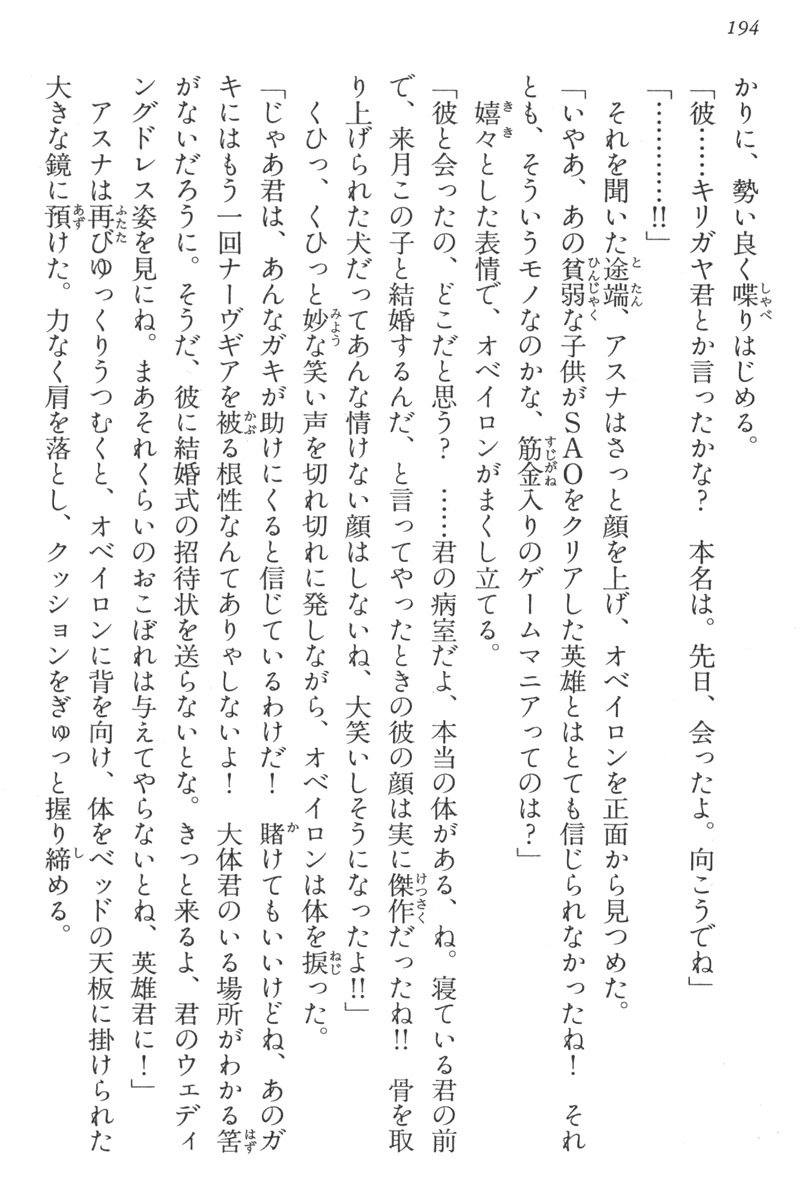 194
かりに、勢い良く喋りはじめる。
「彼……キリガヤ君とか言ったかな？　本名は。先日、会ったよ。向こうでね」
「…………!!」
それを聞いた途端、アスナはさっと顔を上げ、オベイロンを正面から見つめた。
「いやあ、あの貧弱な子供がSAOをクリアした英雄とはとても信じられなかったね！　それ
とも、そういうモノなのかな、筋金入りのゲームマニアってのは？」
嬉々とした表情で、オベイロンがまくし立てる。
「彼と会ったの、どこだと思う？　……君の病室だよ、本当の体がある、ね。寝ている君の前
で、来月この子と結婚するんだ、と言ってやったときの彼の顔は実に傑作だったね!!　骨を取
り上げられた犬だってあんな情けない顔はしないね、大笑いしそうになったよ!!」
くひっ、くひっと妙な笑い声を切れ切れに発しながら、オベイロンは体を捩った。
「じゃあ君は、あんなガキが助けにくると信じているわけだ！　賭けてもいいけどね、あのガ
キにはもう一回ナーヴギアを被る根性なんてありゃしないよ！　大体君のいる場所がわかる筈
がないだろうに。そうだ、彼に結婚式の招待状を送らないとな。きっと来るよ、君のウェディ
ングドレス姿を見にね。まあそれくらいのおこぼれは与えてやらないとね、英雄君に！」
アスナは再びゆっくりうつむくと、オベイロンに背を向け、体をベッドの天板に掛けられた
大きな鏡に預けた。力なく肩を落とし、クッションをぎゅっと握り締める。